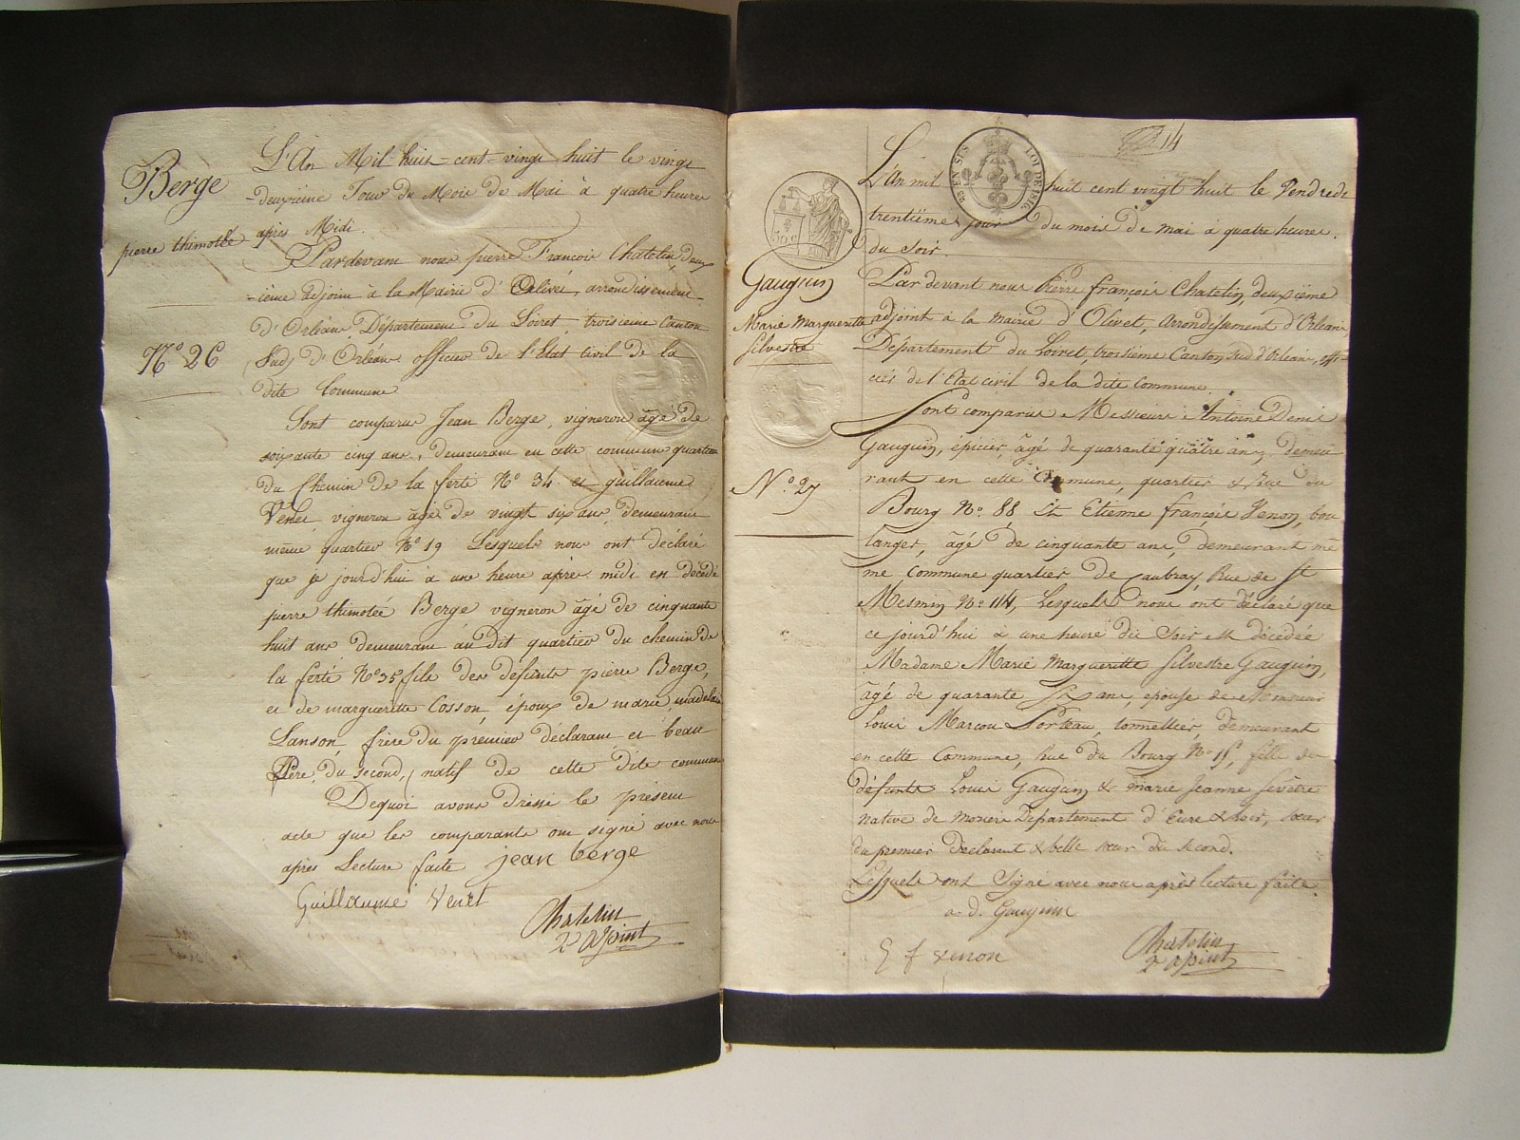 Berge
pierre thimotée
N.º 26
L'An Mil-huis-cent-vingt huit le vingt
-deuxième Jour du Mois de Mai à quatre heures
après Midi.
Pardevant nous pierre François Chatelin, deux
-ième adjoint à la Mairie d'Olivet, arrondissement
d'Orléans, Département du Loiret, troisieme Canton
(Sud) d'Orléans officier de l'Etat Civil de la
dite Commune
Sont comparus Jean Berge, vigneron âgé de
soixante cinq ans, demeurant en cette commune quartier
du Chemin de la ferté N.º 34 et guillaume
Venet, vigneron âgé de vingt six ans, demeurant
même quartier N.º 19 Lesquels nous ont déclaré
que je jourd'hui à une heure après midi est décédé
pierre thimotée Berge vigneron âgé de cinquante
huit ans demeurant au dit quartier du chemin de
la ferté N.º 35 fils des défunts pierre Berge,
et de margueritte Cosson, époux de marie madelaine
Lanson, frère du premier déclarant et beau
Père du second, natif de cette dite commune
Dequoi avons dressé le présent
acte que les comparants ont signé avec nous
après Lecture faite jean berge
Guillaume Venet
Chatelin
2e Ajoint
14
Gauguin
Marie Marguerite
Silvestre
N.º 27
L'An mil huit cent vingt huit le Vendredi
trentième jour du mois de mai à quatre heures
du Soir.
Par devant nous Pierre françois Chatelin, deuxième
adjoint à la mairie d'Olivet, Arrondissement d'Orleans,
Departement du Loiret, troisième Canton Sud d'Orleans, offi-
ciés de l'Etat civil de la dite Commune
Sont comparus Messieurs Antoine Denis
Gauguin, épicier, âgé de quarante quatre ans, demeu
rant en cette Commune, quartier & rue du
Bourg N.º 88, Et Etienne françois Venon, bou
langer, âgé de cinquante ans, demeurant mê
me Commune quartier de Caubray, Rue de St
Mesmin N.º 114, Lesquels nous ont déclaré que
ce jourd'hui à une heure du Soir est décédée
Madame Marie Margueritte Silvestre Gauguin,
âgé de quarante Six ans, epouse de Monsieur
Louis Marcou Porteau, tonnellier, demeurant
en cette Commune, Rue du Bourg N.º 15, fille de
défunts Louis Gauguin & marie Jeanne
native de Departement d'Eure & Loir, sœur
du premier Declarant & belle sœur du Second.
Lesquels ont Signé avec nous après lecture faite.
a. d. Gauguin
E f venon
Chatelin
2e Ajoint